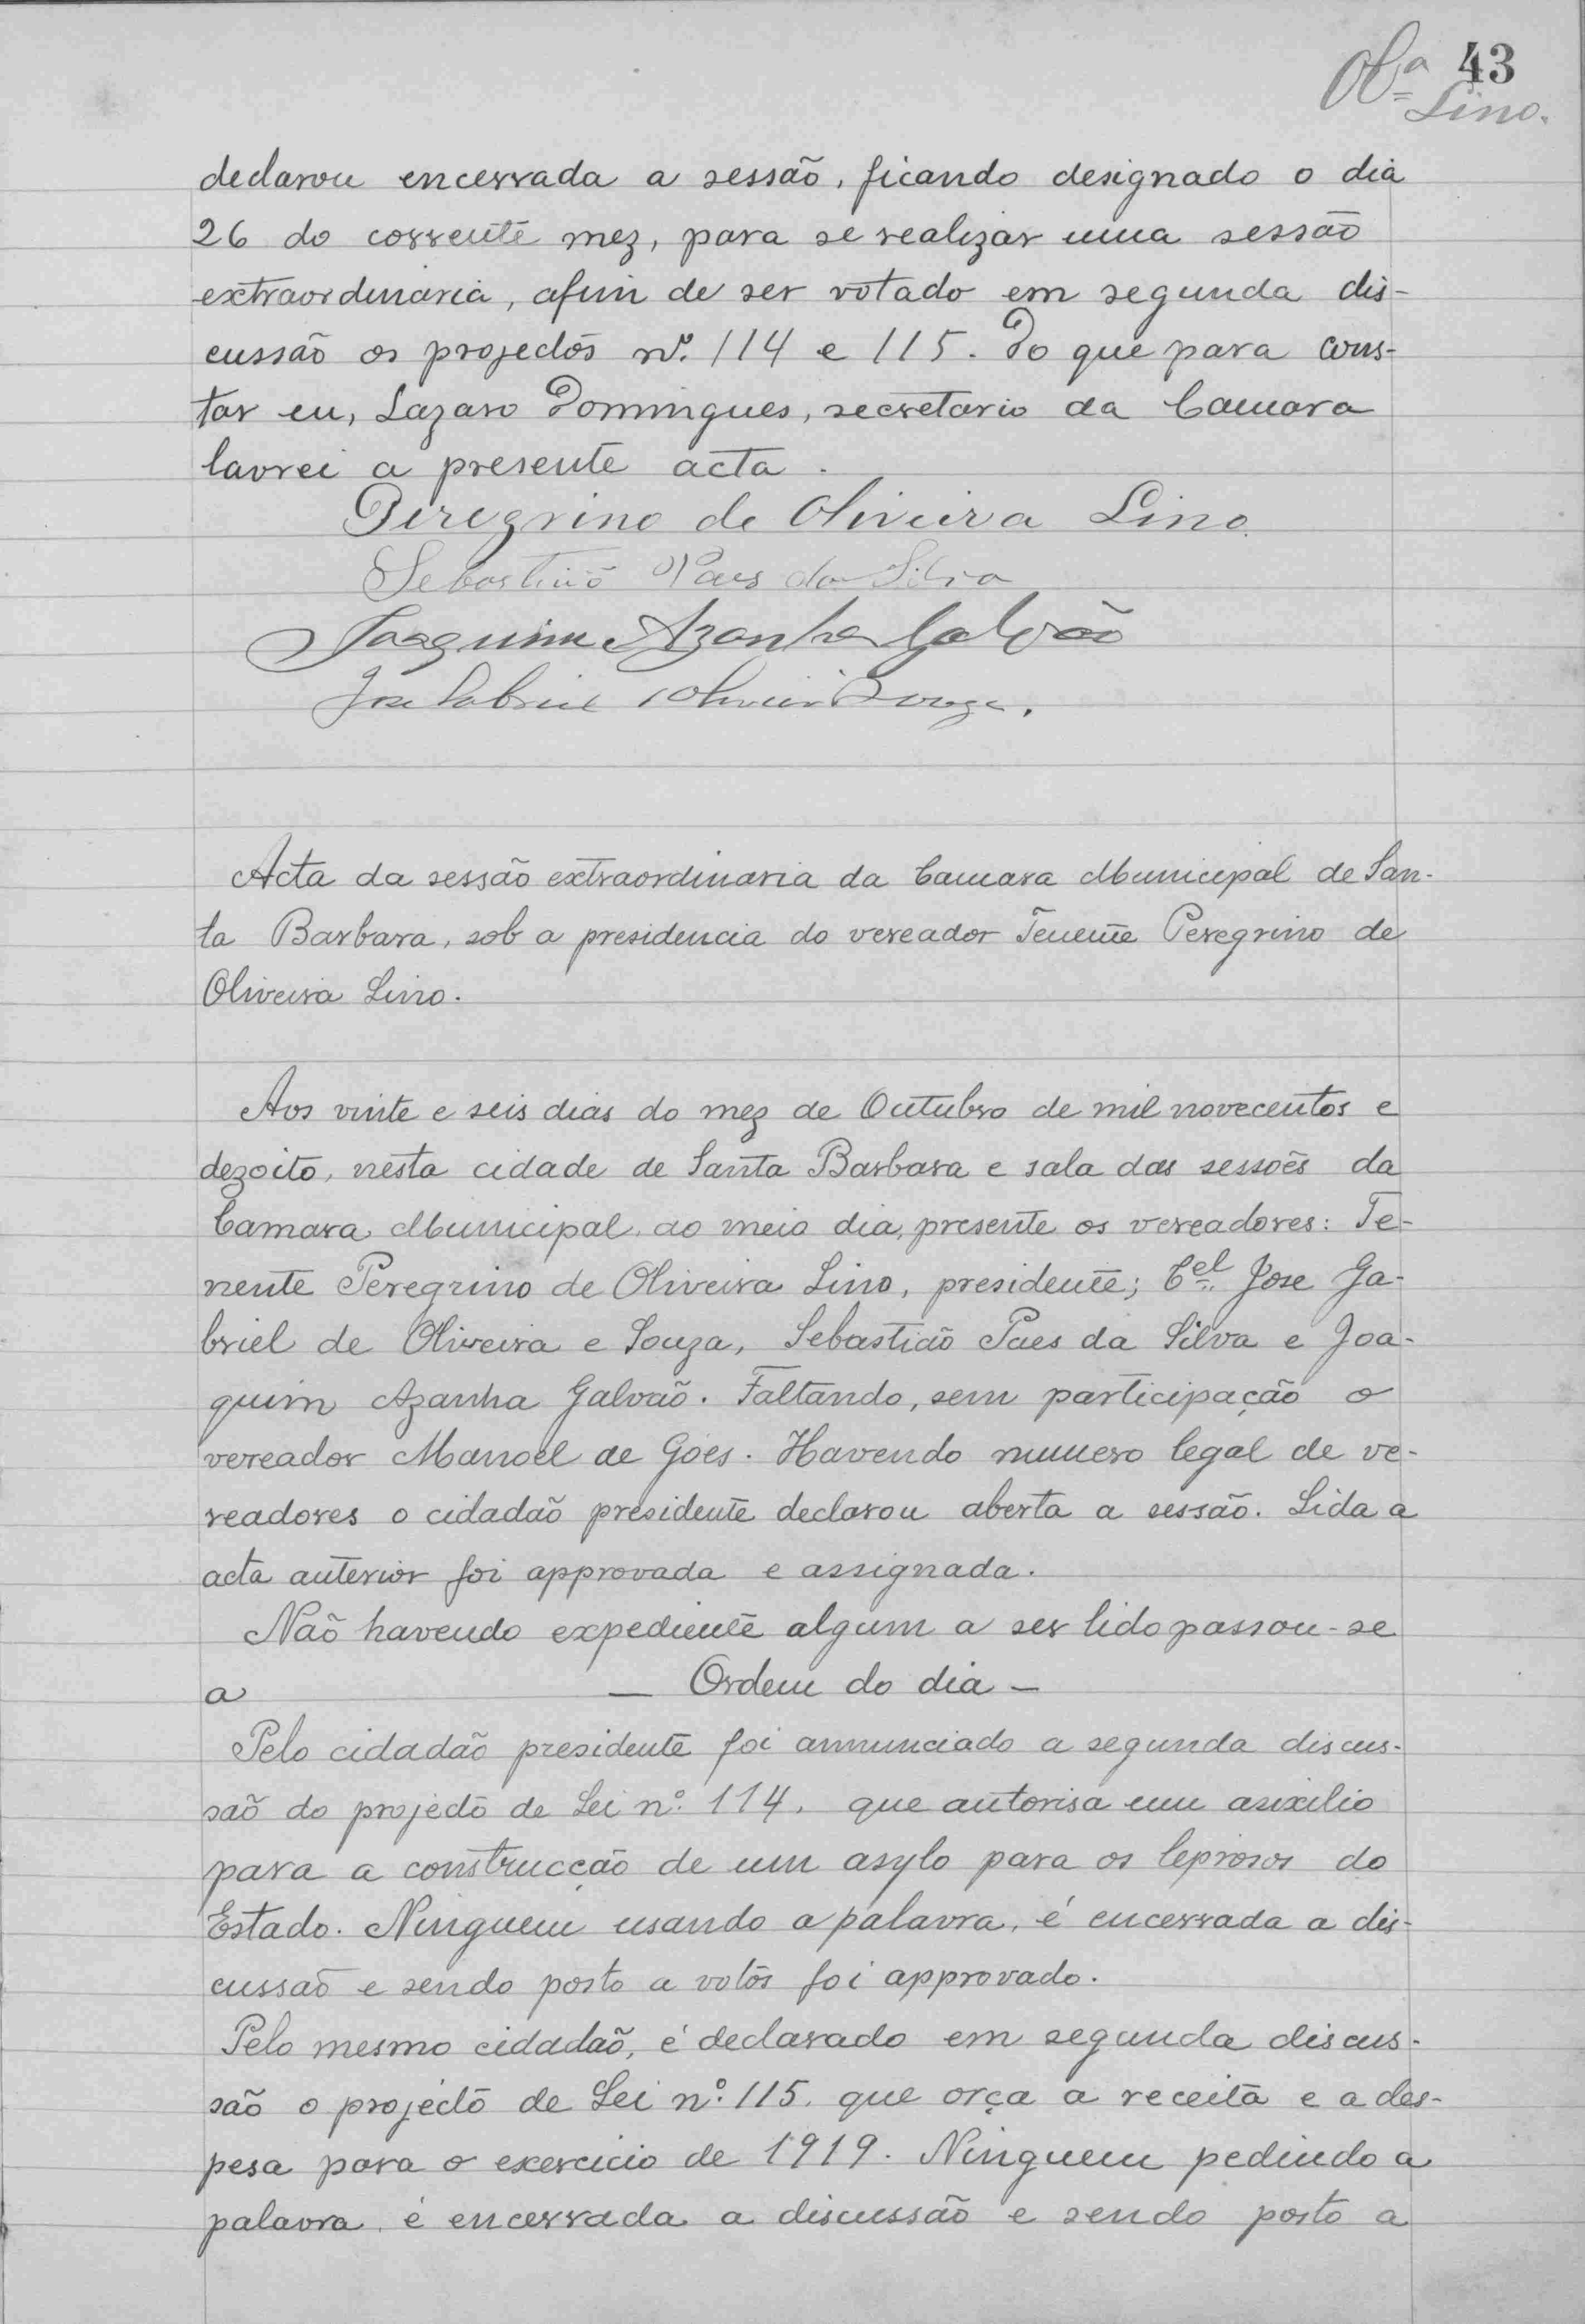 43
Olª Lino.
declarou encerrada a sessão, ficando designado o dia
26 do corrente mez, para se realizar uma sessão
extraordinaria, afim de ser votado em segunda dis-
cussão os projectos nº. 114 e 115. Do que para cons-
tar eu, Lazaro Domingues, secretario da Camara
lavrei a presente acta.
Peregrino de Oliveira Lino.
Sebastião Paes da Silva
Joaquim Azanha Galvão
Jose Gabriel Oliveira Souza.
Acta da sessão extraordinaria da Camara Municipal de San-
ta Barbara, sob a presidencia do vereador Tenente Peregrino de
Oliveira Lino.
Aos vinte e seis dias do mez de Outubro de mil novecentos e
dezoito, nesta cidade de Santa Barbara e sala das sessões da
Camara Municipal, ao meio dia, presente os vereadores: Te-
nente Peregrino de Oliveira Lino, presidente; Cel. Jose Ga-
briel de Oliveira e Souza, Sebastião Paes da Silva e Joa-
quim Azanha Galvão. Faltando, sem participação o
vereador Manoel de Góes. Havendo numero legal de ve-
readores o cidadão presidente declarou aberta a sessão. Lida a
acta anterior foi approvada e assignada.
Não havendo expediente algum a ser lido passou-se
a — Ordem do dia —
Pelo cidadão presidente foi annunciado a segunda discus-
são do projecto de Lei nº. 114, que autorisa um auxilio
para a construcção de um asylo para os leprosos do
Estado. Ninguem usando a palavra, é encerrada a dis-
cussão e sendo posto a votos foi approvado.
Pelo mesmo cidadão, é declarado em segunda discus-
são o projecto de Lei nº. 115, que orça a receita e a des-
pesa para o exercicio de 1919. Ninguem pedindo a
palavra, é encerrada a discussão e sendo posto a